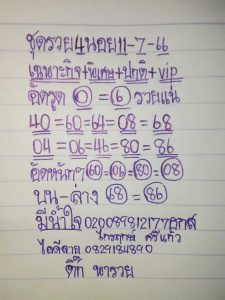 ชุดรวย4นอย11-7-66
เฉพาะกิจ+พิเศษ+ปกติ+vip
อัดรูด 0=6 รวยแน่
40=60=64=08=68
04=06=46=80=86
อัดหนักๆ 60=06=80=08
บน-ล่าง 68=86
มีน้ำใจ 020089812177 ธกส
ไกรฤกษ์ ศรีแก้ว
ไอดีลาย 0829184890
ติ๊ก พารวย